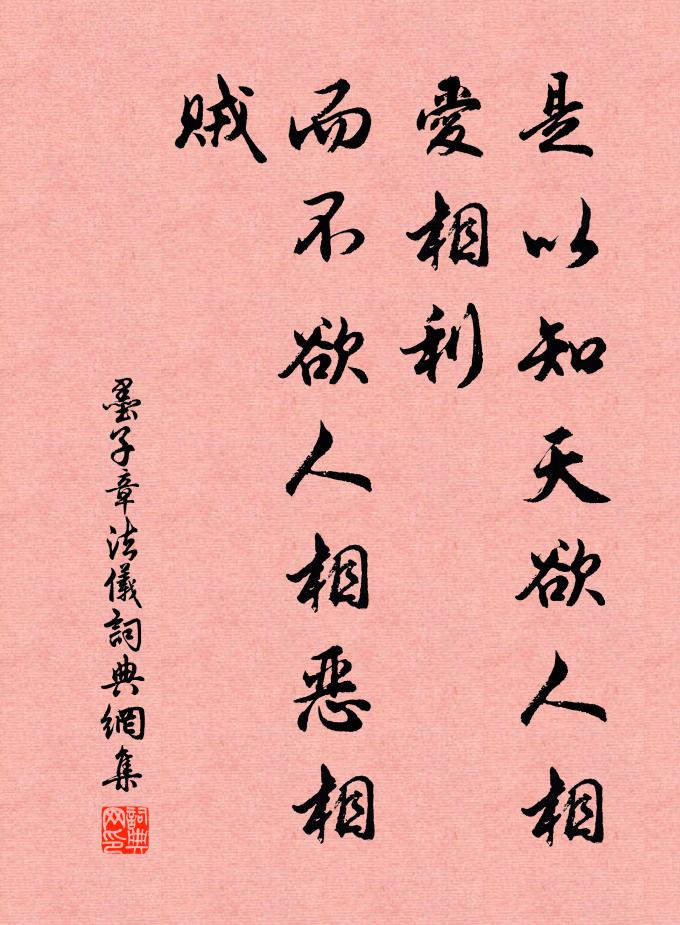 是以知天欲人相
愛相利
而不欲人相惡相
賊
墨子章法儀詞典網集
詞典
网印